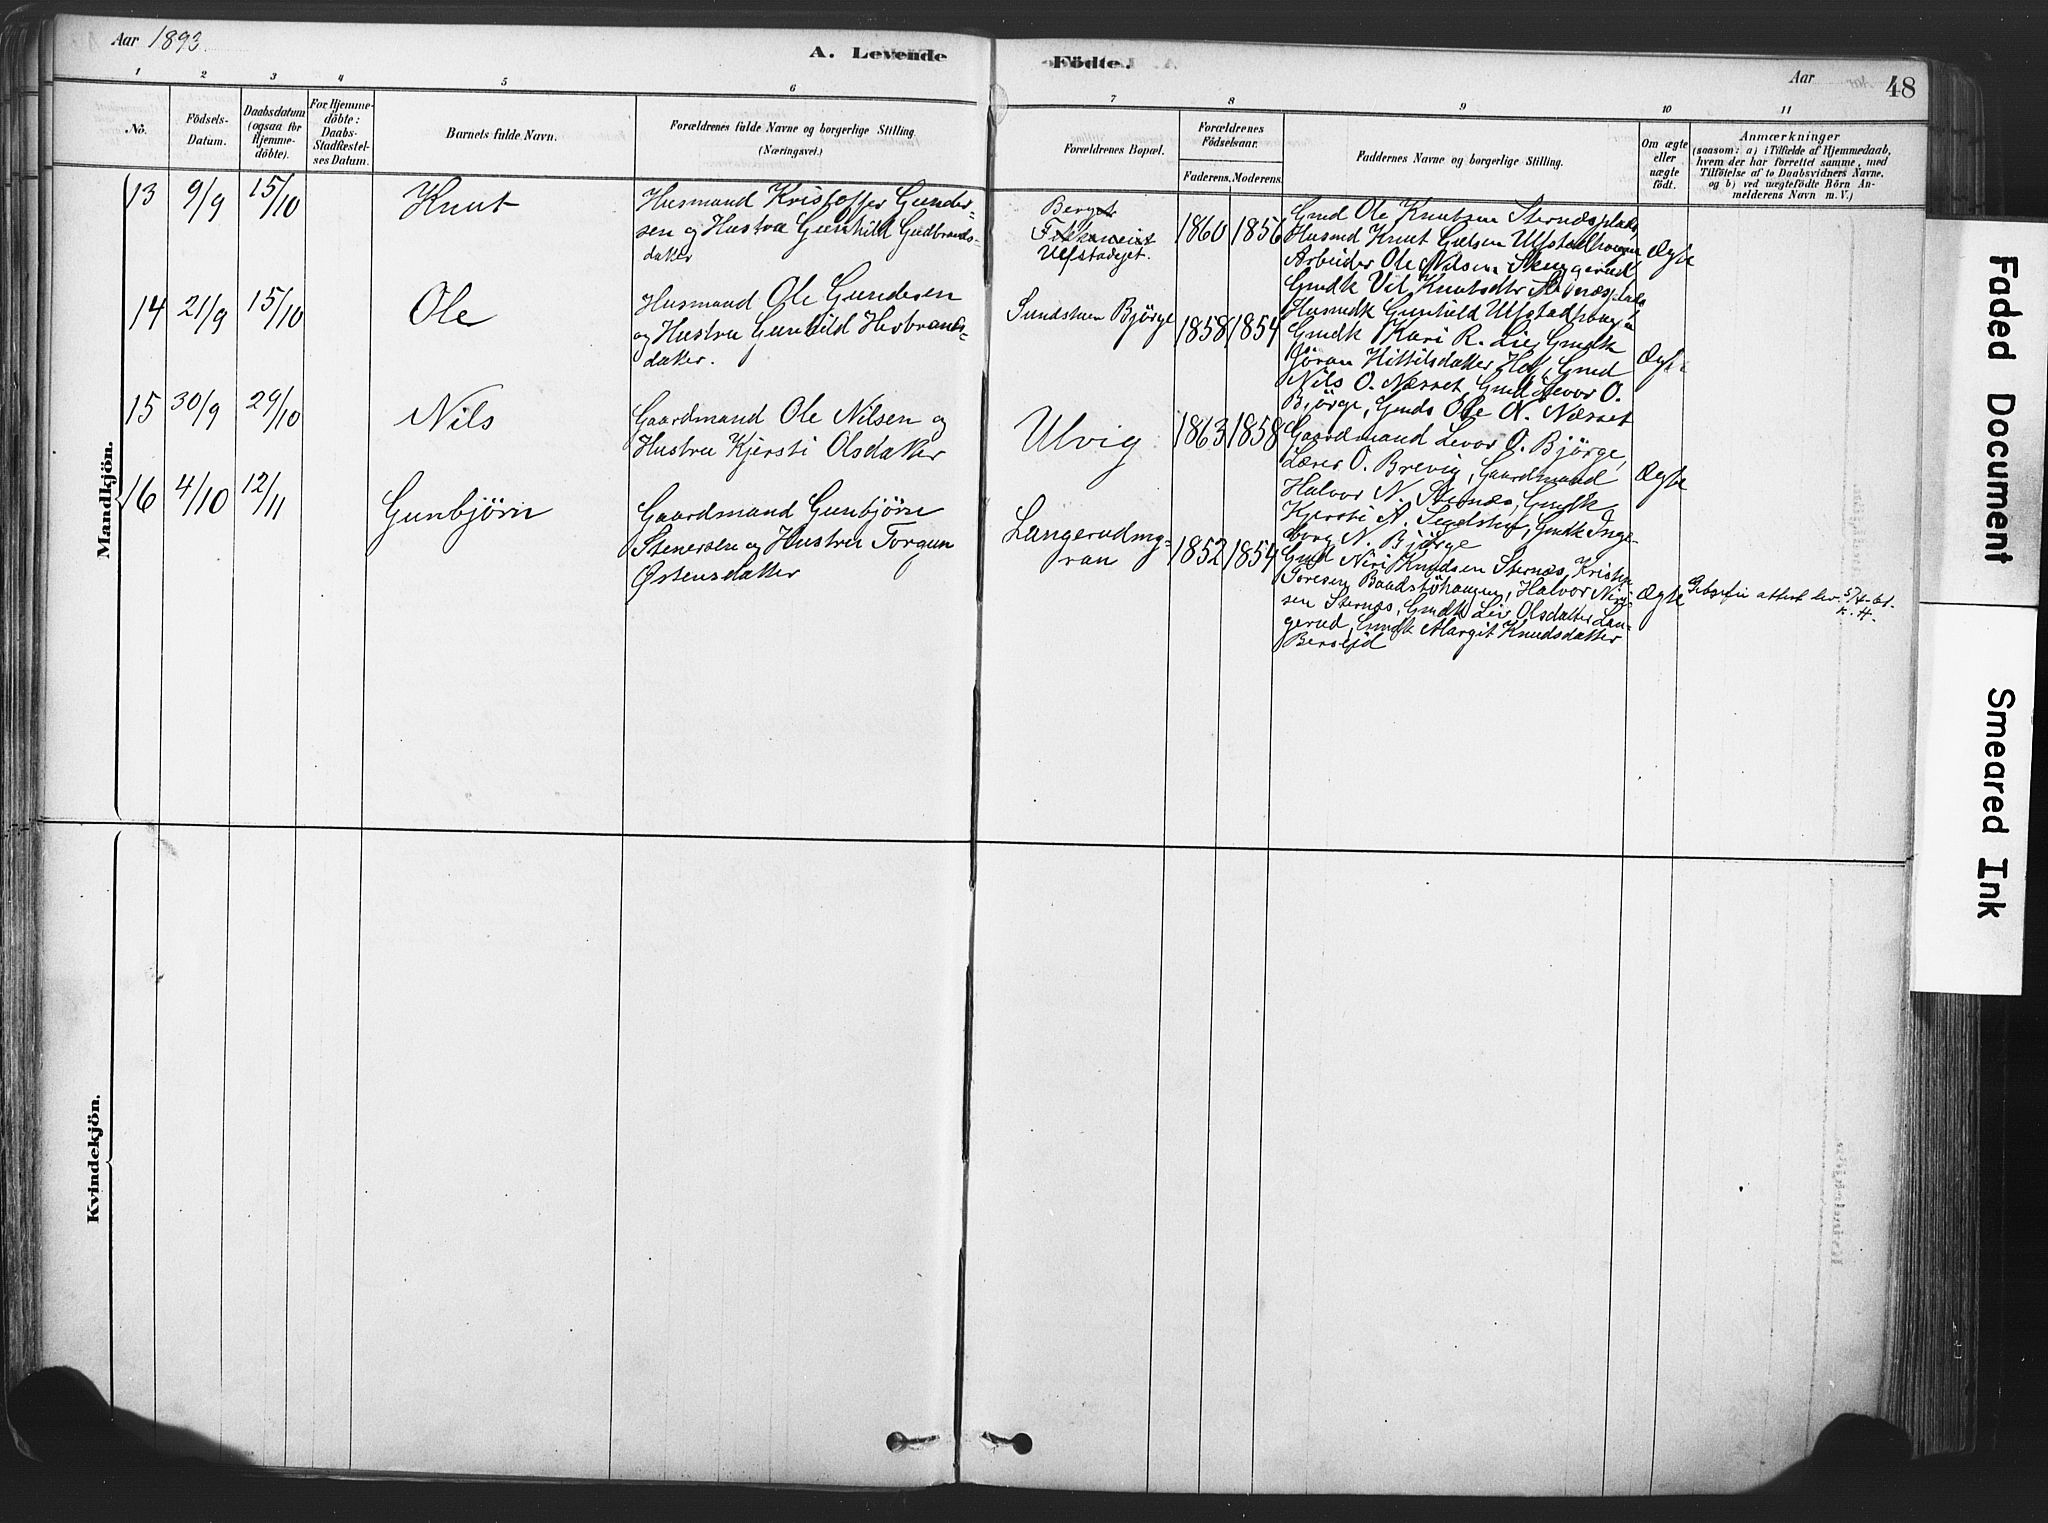 Aar 1893.
A. Levende
Födte.
Aar
48
1
2
3
4
5
6
7
8
9
10
11
No.
Födsels-
Datum.
Daabsdatum
(ogsaa for
Hjemme-
döbte).
For Hjemme-
döbte:
Daabs-
Stadfæstel-
ses Datum.
Barnets fulde Navn.
Forældrenes fulde Navne og borgerlige Stilling.
(Næringsvei.)
Forældrenes Bopæl.
Forældrenes
Födselsaar.
Faderens.
Moderens.
Faddernes Navne og borgerlige Stilling.
Om ægte
eller
uægte
födt.
Anmærkninger
(saasom: a) i Tilfælde af Hjemmedaab,
hvem der har forrettet samme, med
Tilföielse af to Daabsvidners Navne.
og b) ved uægtefödte Börn An-
melderens Navn m. V.)
Mandkjön.
13
9/9
15/10
Knut
Husmand Kristoffer Gunder-
sen og Hustru Gunhild Gudbrands-
datter
Berget
Ulfstadeget.
1860
1856
Gmd Ole Knutsen Sternæsplads,
Husmd Knut
Arbeider Ole Nilsen Skuggerud
Gmdk Knutsdtr
Husmdk Gunhild
Ægte
14
21/9
15/10
Ole
Husmand Ole Gundesen
og Hustru Gunhild Herbrands-
datter.
Sundstuen Bjørge
1858
1854
Gmdk Kari R. Lie, Gmdk
Jøran Kittilsdatter Gmd
Nils O. Næsset, Gmd Levor O.
Bjørge, Ole N. Næsset
Ægte
15
30/9
29/10
Nils
Gaardmand Ole Nilsen og
Hustru Kjersti Olsdatter
Ulvig
1863
1858
Gaardmand Levor O. Bjørge,
Lærer O. Brevig, Gaardmand
Halvor N. Sternæs, Gmdk
Kjersti A. Gmdk Inge-
borg N. Bjørge
Ægte
16
4/10
12/11
Gunbjörn
Gaardmand Gunbjörn
Stenersen og Hustru Torgun
Østensdatter
Langerudmy-
ran
1852
1854
Gmd Niri Knudsen Sternæs,
Toresen Halvor Niri-
sen Sternæs, Gmdk Liv Olsdatter Lan-
gerud, Gmdk Margit Knudsdatter
Ægte
attest
Kvindekjön.
Faded Document
Smeared Ink